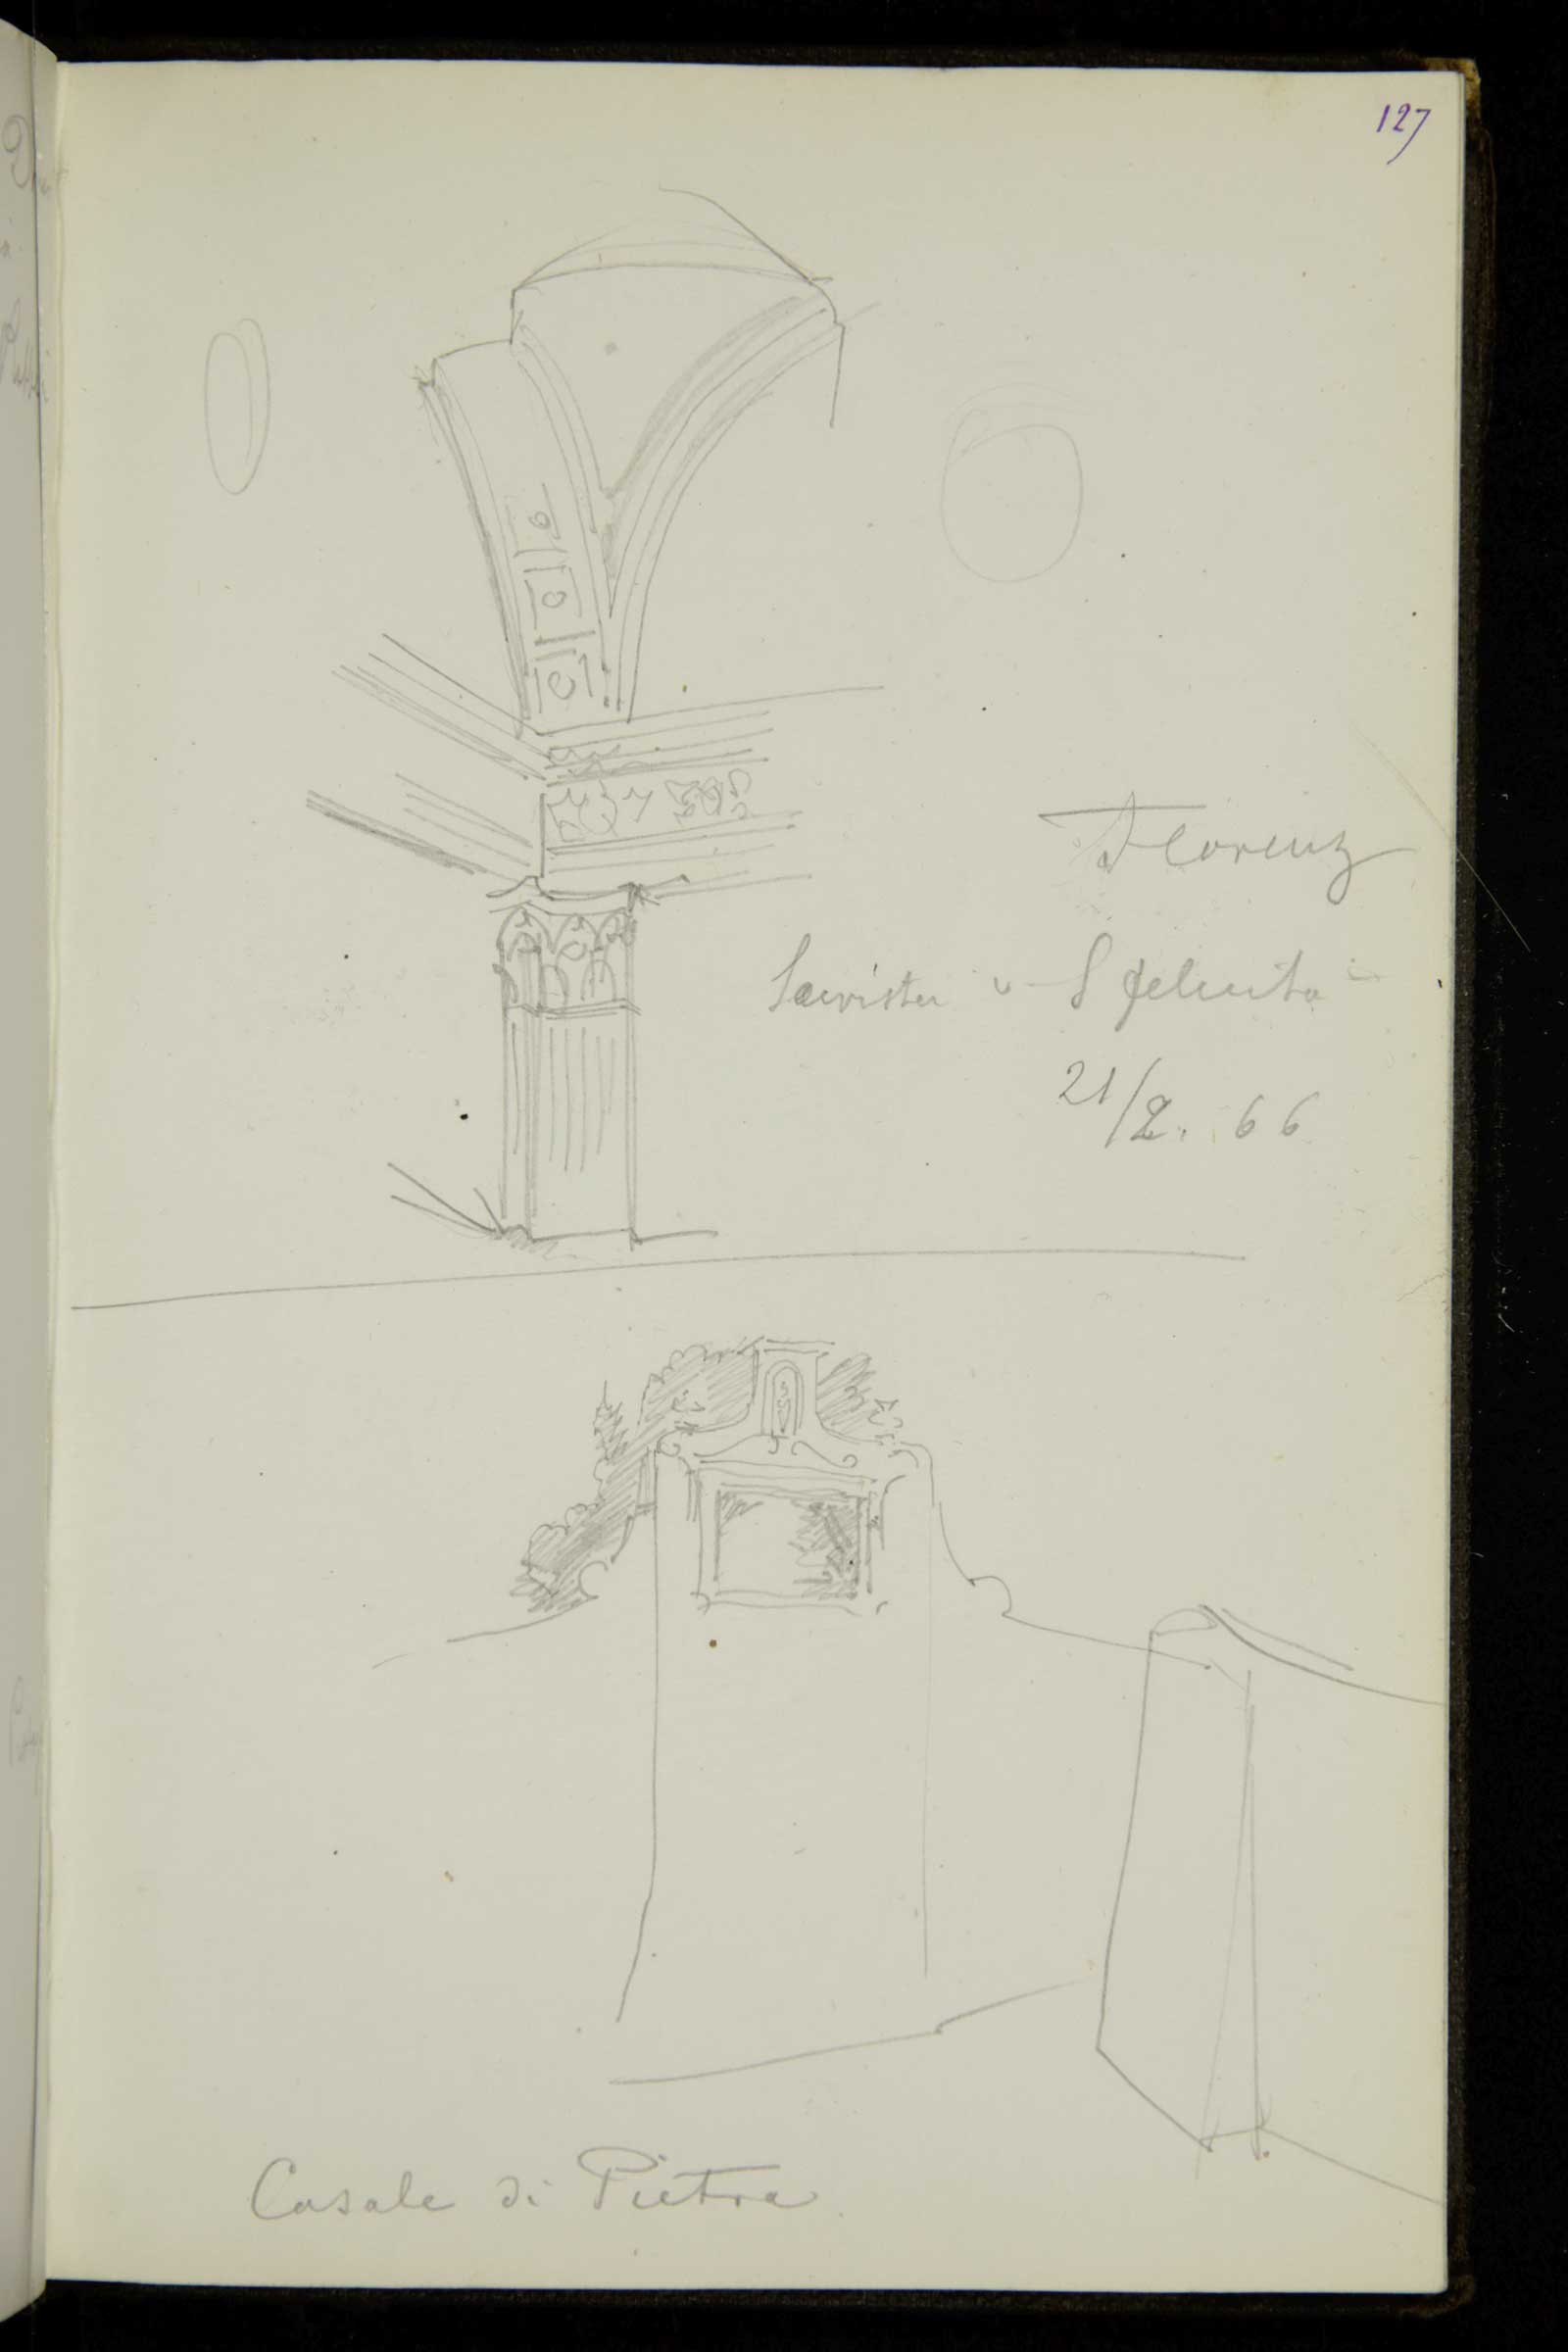 127
Florenz
Sacristei v. S Felicita
21/2. 66
Casale di Pietra